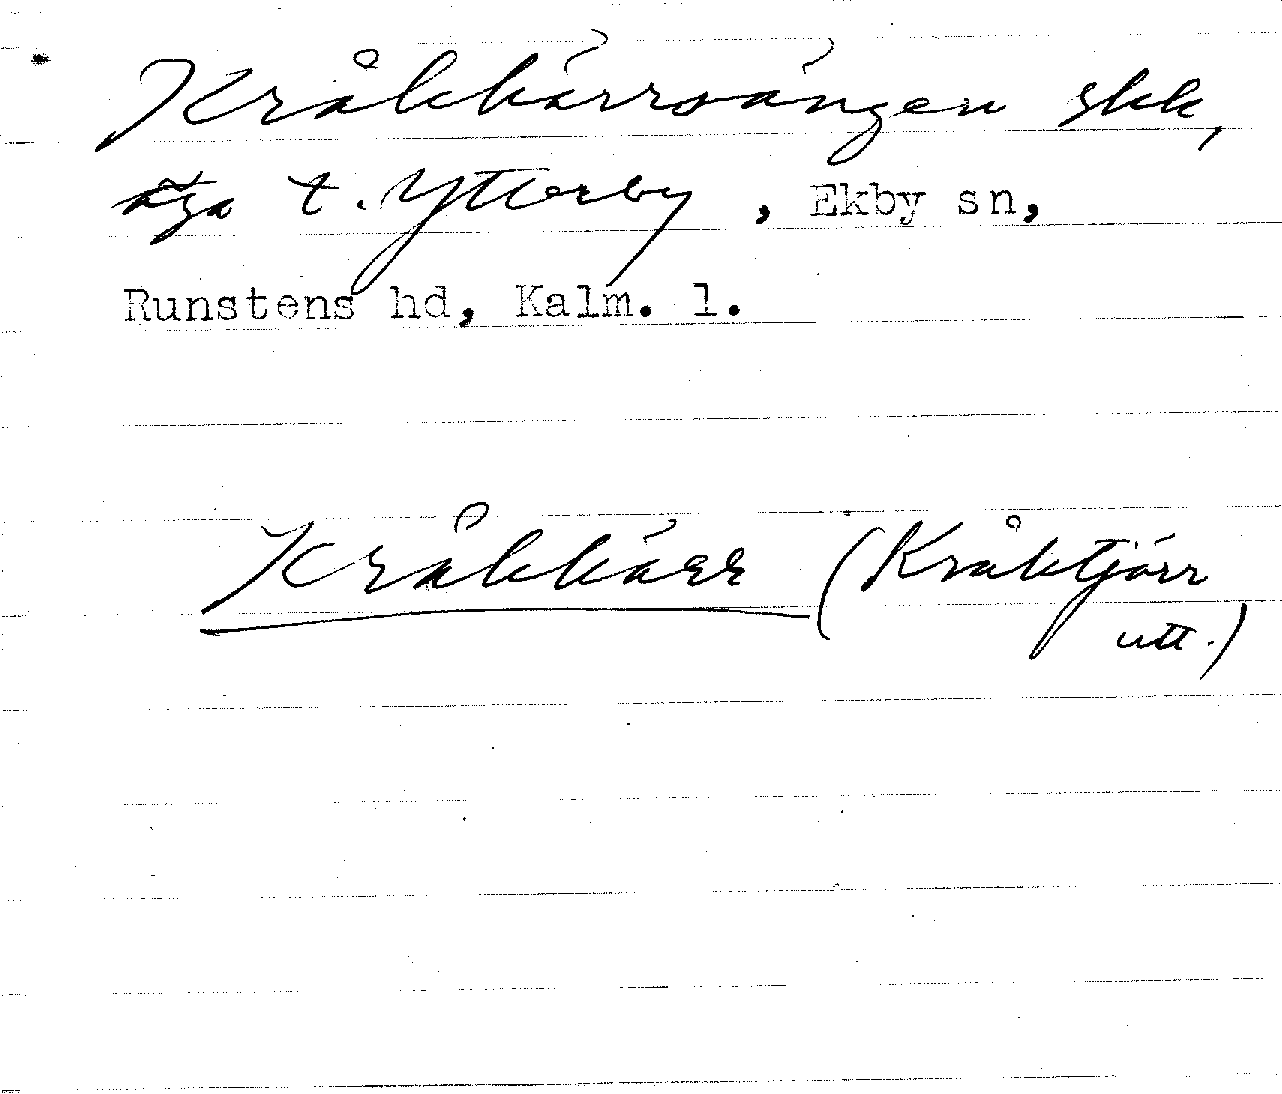 Kråkkärrsängen skk,
äga t. Ytterby, Ekby sn,
Runstens hd, Kalm. l.
Kråkkärr (Kråktjärr
utt.)